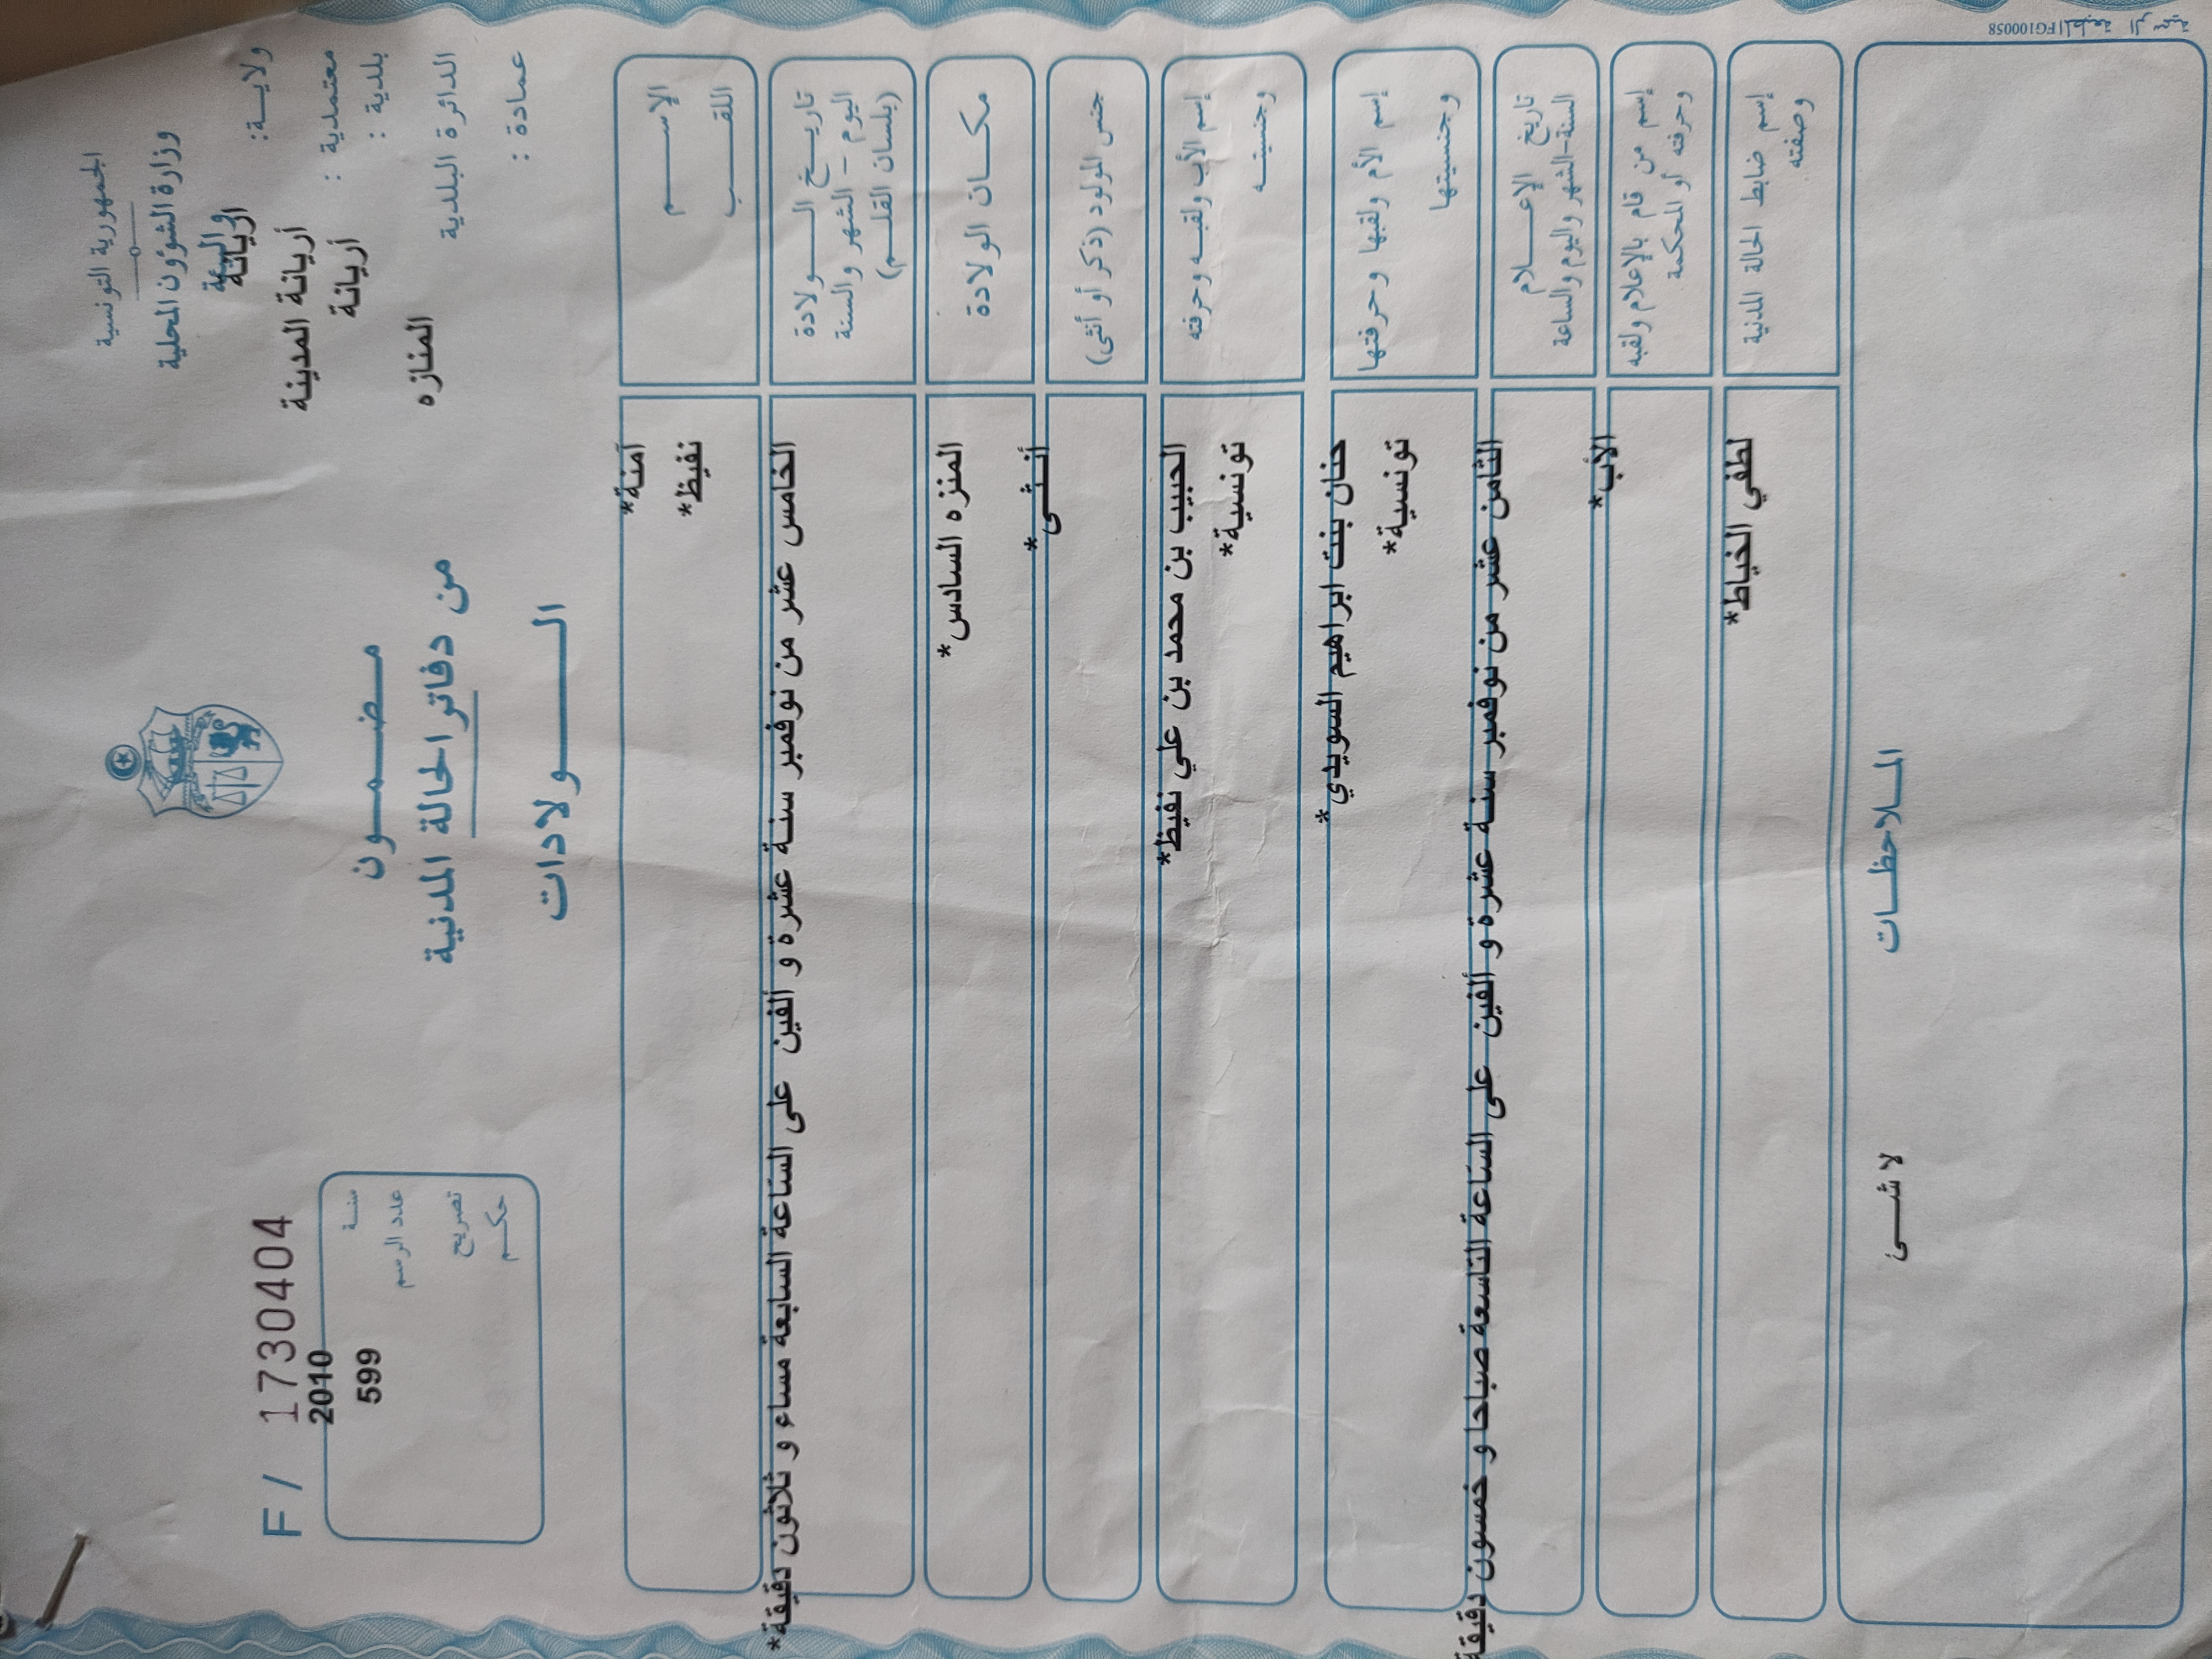 الجمهورية التونسية
وزارة الشؤون المحلية
والبيئة
ولايـــة: اريانة
معتمدية : أريانة المدينة
بلدية : أريانة
الدائرة البلدية المنازه
عمادة :
مـضـمـون
من دفاتر الحالة المدنية
الـــولادات
F / 1730404
سنـة 2010
عدد الرسم 599
تصريح
حكـم
الإســـم آمنة*
اللقـــب نفيظ*
تاريـخ الـــولادة
اليوم – الشهر والسنة
(بلسان القلـم)
الخامس عشر من نوفمبر سنـة عشرة و ألفين على الساعة السابعة مساء و ثلاثون دقيقة*
مكـــان الولادة المنزه السادس*
جنس المولود (ذكر أو أنثى) أنـثـى*
إسم الأب ولقبـه وحرفته الحبيب بن محمد بن علي نفيظ*
وجنسيتـه تونسية*
إسم الأم ولقبها وحرفتها حنان بنت ابراهيم السويدي*
وجنسيتها تونسية*
تاريخ الإعـــلام
السنة-الشهر واليوم والساعة
الثامن عشر من نوفمبر سنـة عشرة و ألفين على الساعة التاسعة صباحا و خمسون دقيقة
إسم من قام بالإعلام ولقبه الأب*
وحرفته أو المحكمة
إسم ضابط الحالة المدنية لطفي الخياط*
وصفته
المـلاحظـات
لا شـــئ
المطبعة الرسمية
FG100058